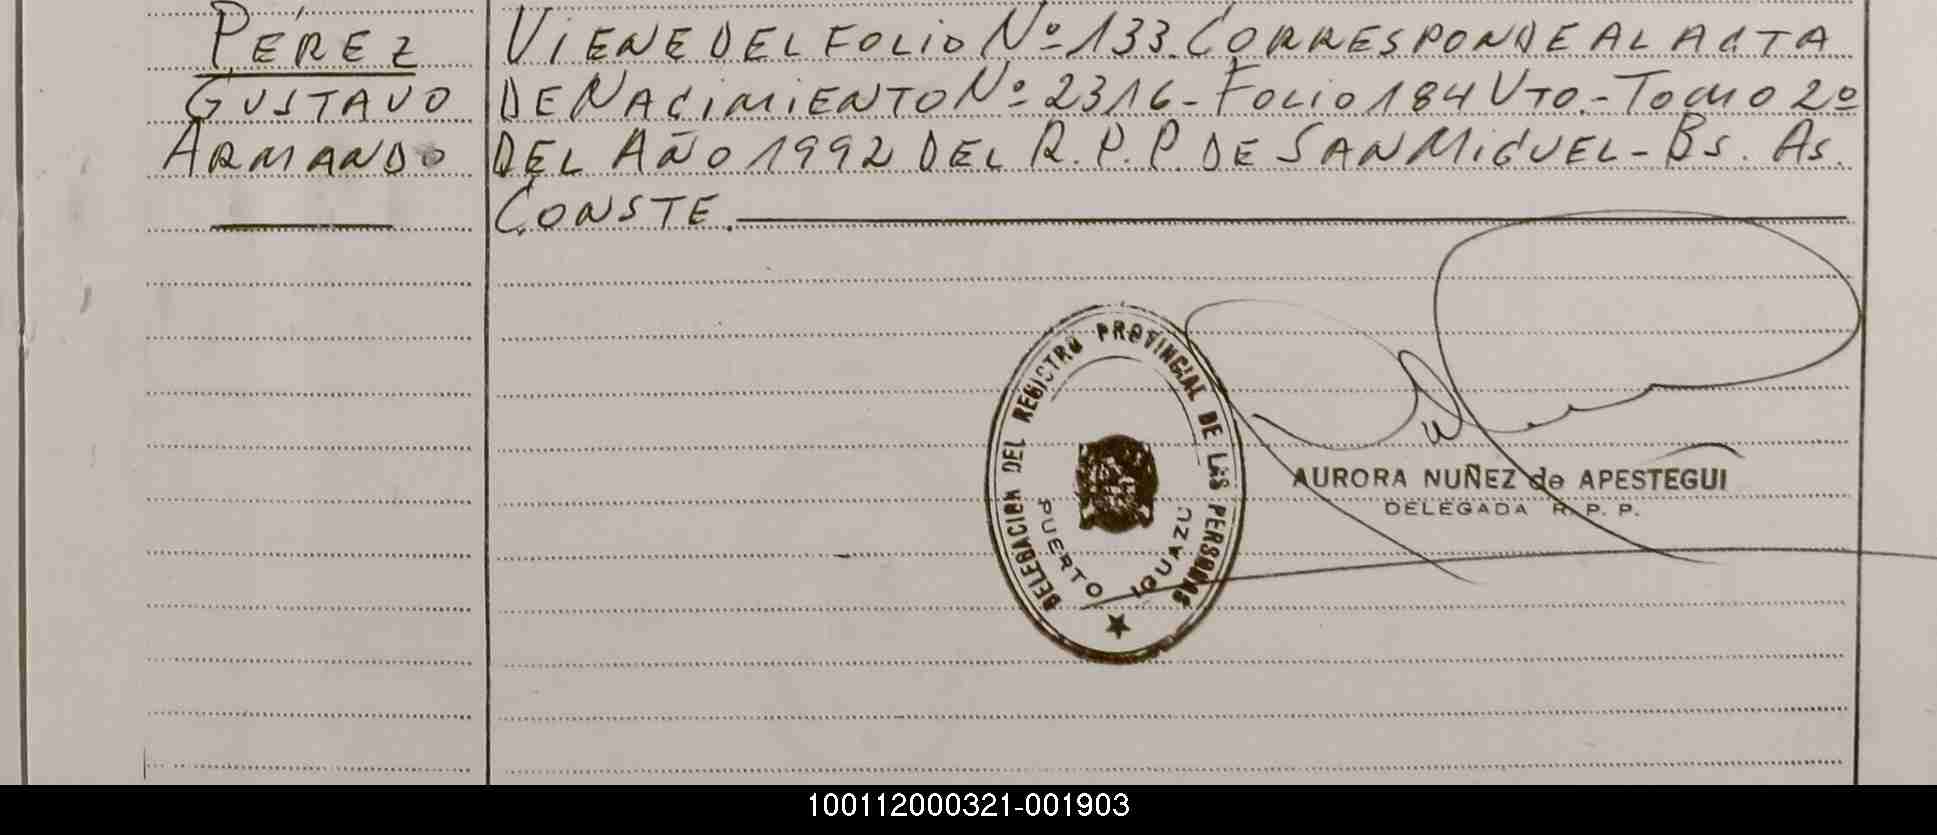 PÉREZ
GUSTAVO
ARMANDO
VIENE DEL FOLIO Nº 133. CORRESPONDE AL ACTA
DE NACIMIENTO Nº 2316 - FOLIO 184 VTO. - TOMO 2º
DEL AÑO 1992 DEL R. P. P. DE SAN MIGUEL - BS. AS.
CONSTE.
DELEGACION DEL REGISTRO PROVINCIAL DE LAS PERSONAS
PUERTO IGUAZÚ
AURORA NUÑEZ de APESTEGUI
DELEGADA R. P. P.
100112000321-001903